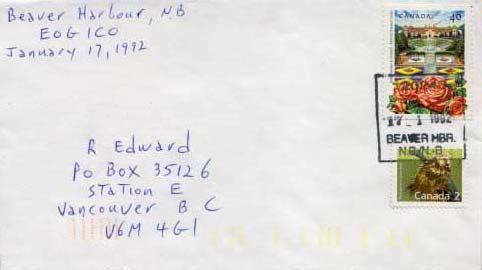 Beaver Harbour, N.B
E0G 1C0
January 17, 1992
CANADA
40
17 1 1992
BEAVER HBR.
N.B.-N.B.
Canada 2
R Edward
Po Box 35126
Station E
Vancouver B C
V6M 4G1